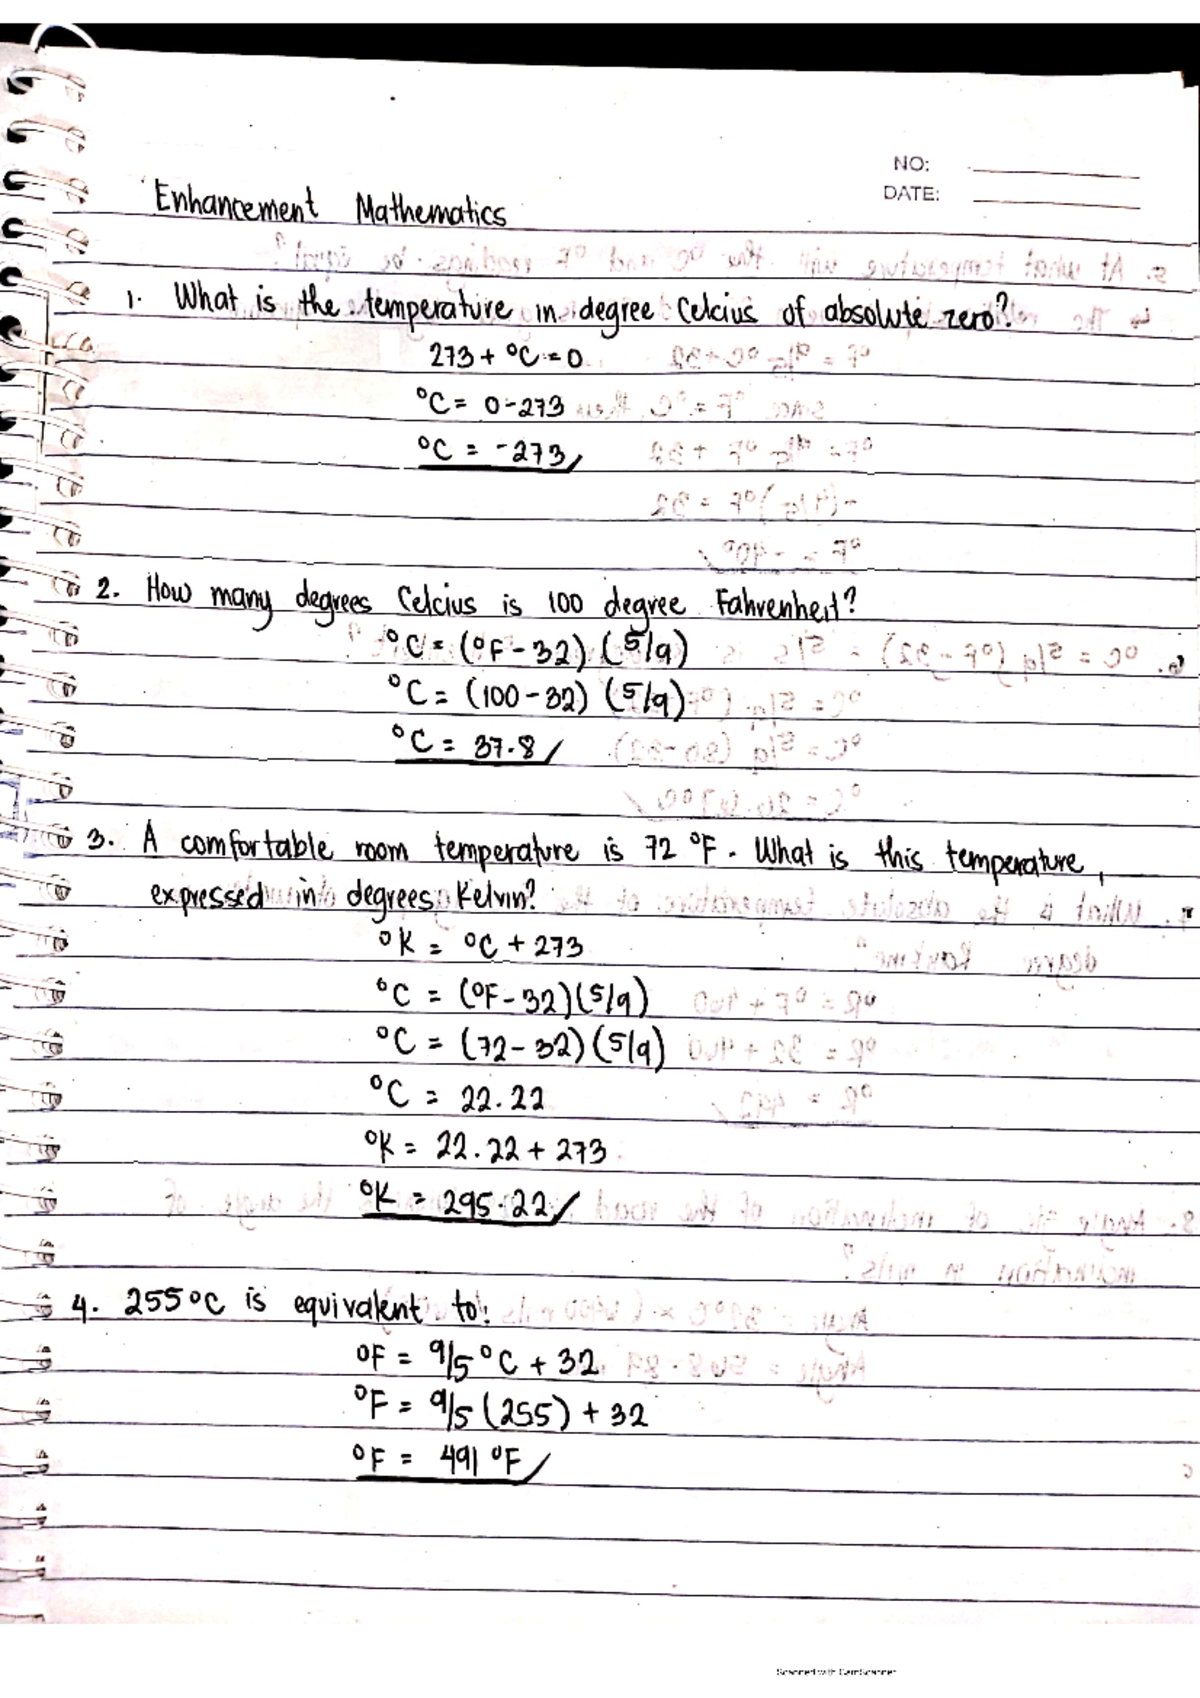 NO:
DATE:
Enhancement Mathematics
1. What is the temperature in degree Celcius of absolute zero?
273 + °C = 0
°C = 0-273
°C = -273
2. How many degrees Celcius is 100 degree Fahrenheit?
°C = (°F - 32) (5/9)
°C = (100 - 32) (5/9)
°C = 37.8
3. A comfortable room temperature is 72 °F. What is this temperature,
expressed in degrees Kelvin?
°K = °C + 273
°C = (°F - 32)(5/9)
°C = (72 - 32)(5/9)
°C = 22.22
°K = 22.22 + 273
°K = 295.22
4. 255°C is equivalent to:
°F = 9/5 °C + 32
°F = 9/5 (255) + 32
°F = 491 °F
Scanned with CamScanner